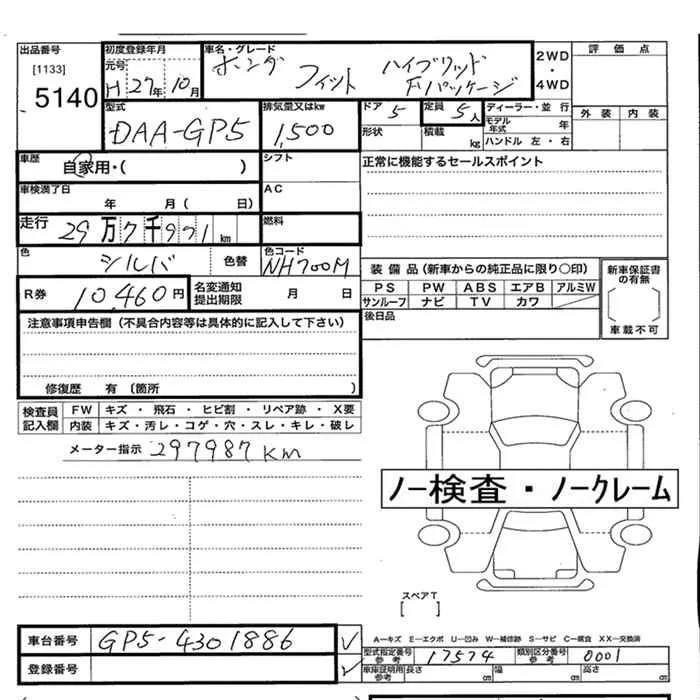 出品番号 初度登録年月 車名・グレード 評価点
[1133] 元号 H 27年 10月 ホンダ フィット ハイブリッド Fパッケージ 2WD・4WD
5140
型式 排気量又はkw ドア 5 定員 5人 ディーラー・並行 外装 内装
DAA-GP5 1,500 形状 積載 kg モデル年式 年
ハンドル 左・右
車歴 自家用・( ) シフト 正常に機能するセールスポイント
車検満了日 年 月( 日) AC
走行 29万7千971km 燃料
色 シルバ 色替 色コード NH700M
装備品(新車からの純正品に限り○印) 新車保証書の有無
R券 10,460円 名変通知提出期限 月 日
PS PW ABS エアB アルミW
サンルーフ ナビ TV カワ
後日品 車載不可
注意事項申告欄(不具合内容等は具体的に記入して下さい)
修復歴 有 (箇所 )
検査員記入欄 FW キズ・飛石・ヒビ割・リペア跡・X要
内装 キズ・汚レ・コゲ・穴・スレ・キレ・破レ
メーター指示 297987km
ノー検査・ノークレーム
スペアT
[ ]
車台番号 GP5-4301886 ✓
登録番号 ✓
A―キズ E―エクボ U―凹み W―補修跡 S―サビ C―腐食 XX―交換済
型式指定番号 参考 17574 類別区分番号 参考 0001
車庫証明用 参考 長さ cm 幅 cm 高さ cm